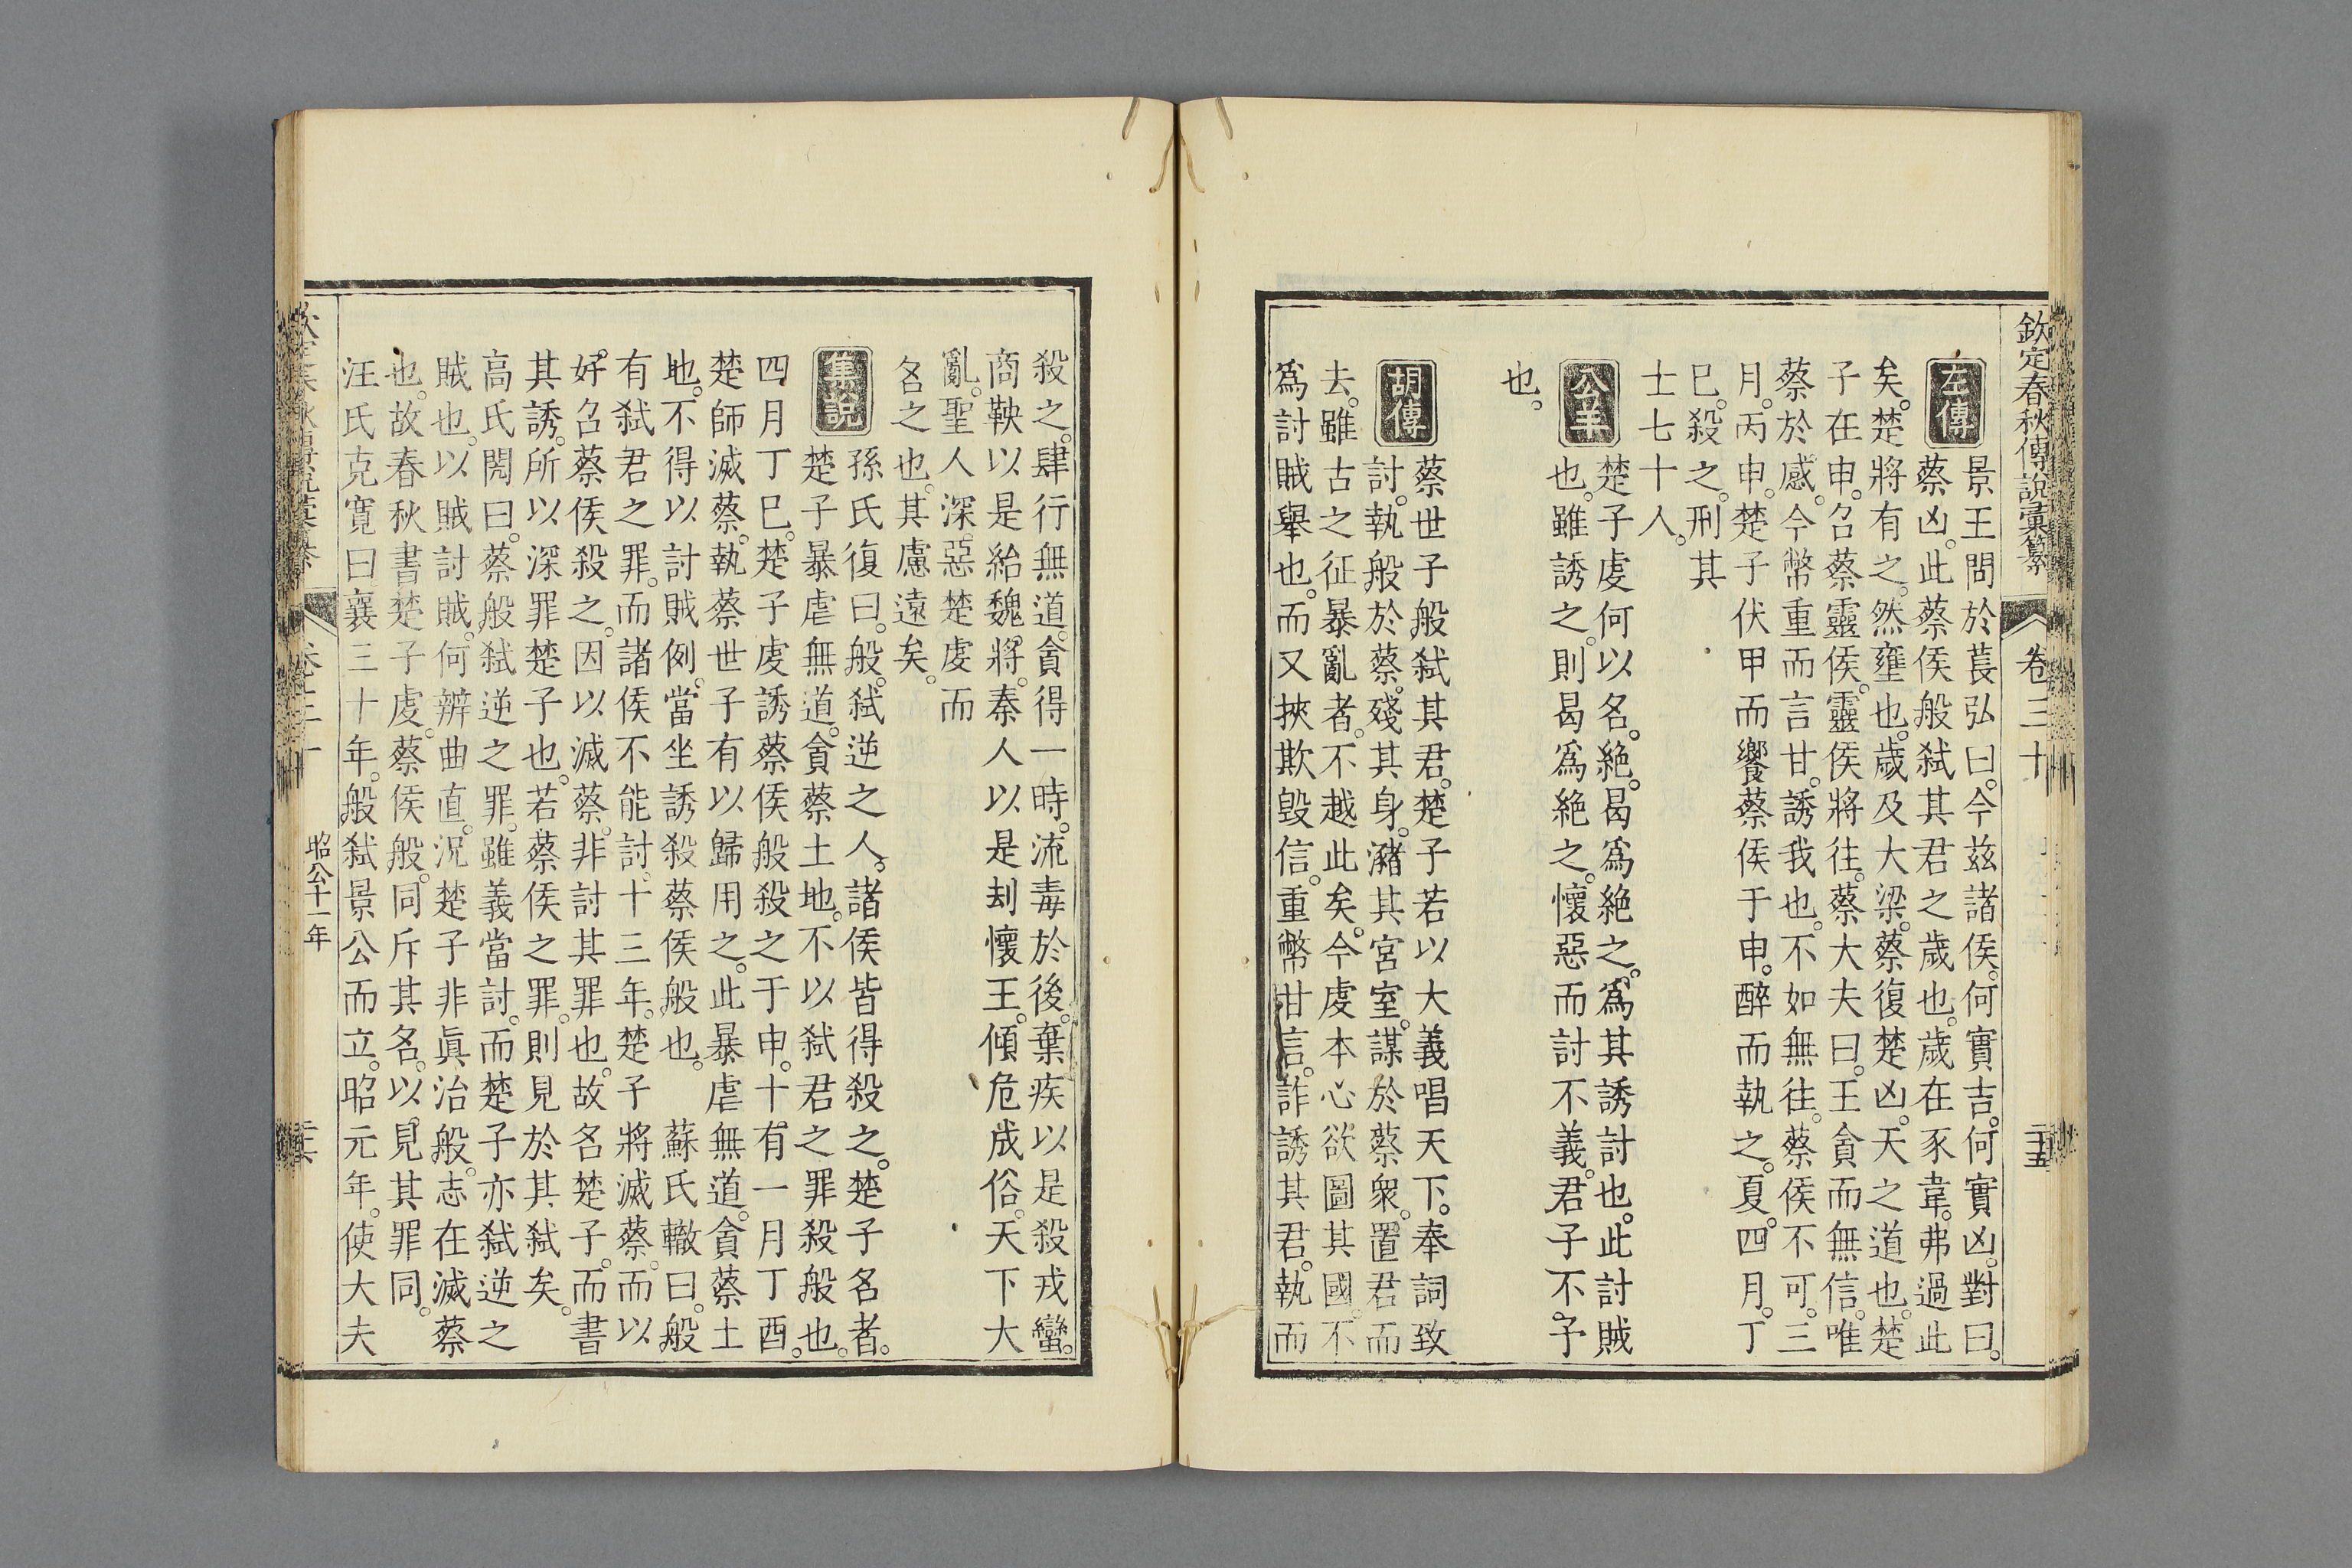 欽定春秋傳說彙纂
卷三十
二十五
左傳
景王問於萇弘曰。今茲諸侯。何實吉。何實凶。對曰。
蔡凶。此蔡侯般弑其君之歲也。歲在豕韋。弗過此
矣。楚將有之。然壅也。歲及大梁。蔡復楚凶。天之道也。楚
子在申。召蔡靈侯。靈侯將往。蔡大夫曰。王貪而無信。唯
蔡於感。今幣重而言甘。誘我也。不如無往。蔡侯不可。三
月。丙申。楚子伏甲而饗蔡侯于申。醉而執之。夏。四月。丁
巳。殺之。刑其
士七十人。
公羊
楚子虔何以名。絶。曷爲絶之。爲其誘討也。此討賊
也。雖誘之。則曷爲絶之。懷惡而討不義。君子不予
也。
胡傳
蔡世子般弑其君。楚子若以大義唱天下。奉詞致
討。執般於蔡。殘其身。瀦其宮室。謀於蔡衆。置君而
去。雖古之征暴亂者。不越此矣。今虔本心欲圖其國。不
爲討賊舉也。而又挾欺毀信。重幣甘言。詐誘其君。執而
殺之。肆行無道。貪得一時。流毒於後。棄疾以是殺戎蠻。
商鞅以是紿魏。將。秦人以是刦懷王。傾危成俗。天下大
亂。聖人深惡楚虔而
名之也。其慮遠矣。
集說
孫氏復曰。般。弑逆之人。諸侯皆得殺之。楚子名者。
楚子暴虐無道。貪蔡土地。不以弑君之罪殺般也。
四月丁巳。楚子虔誘蔡侯般殺之于申。十有一月丁酉。
楚師滅蔡。執蔡世子有以歸用之。此暴虐無道。貪蔡土
地。不得以討賊例。當坐誘殺蔡侯般也。 蘇氏轍曰。般
有弑君之罪。而諸侯不能討。十三年。楚子將滅蔡。而以
好召蔡侯殺之。因以滅蔡。非討其罪也。故名楚子。而書
其誘。所以深罪楚子也。若蔡侯之罪。則見於其弑矣。
高氏閌曰。蔡般弑逆之罪。雖義當討。而楚子亦弑逆之
賊也。以賊討賊。何辨曲直。況楚子非眞治般。志在滅蔡
也。故春秋書楚子虔。蔡侯般。同斥其名。以見其罪同。
汪氏克寬曰。襄三十年。般弑景公而立。昭元年。使大夫
昭公十一年